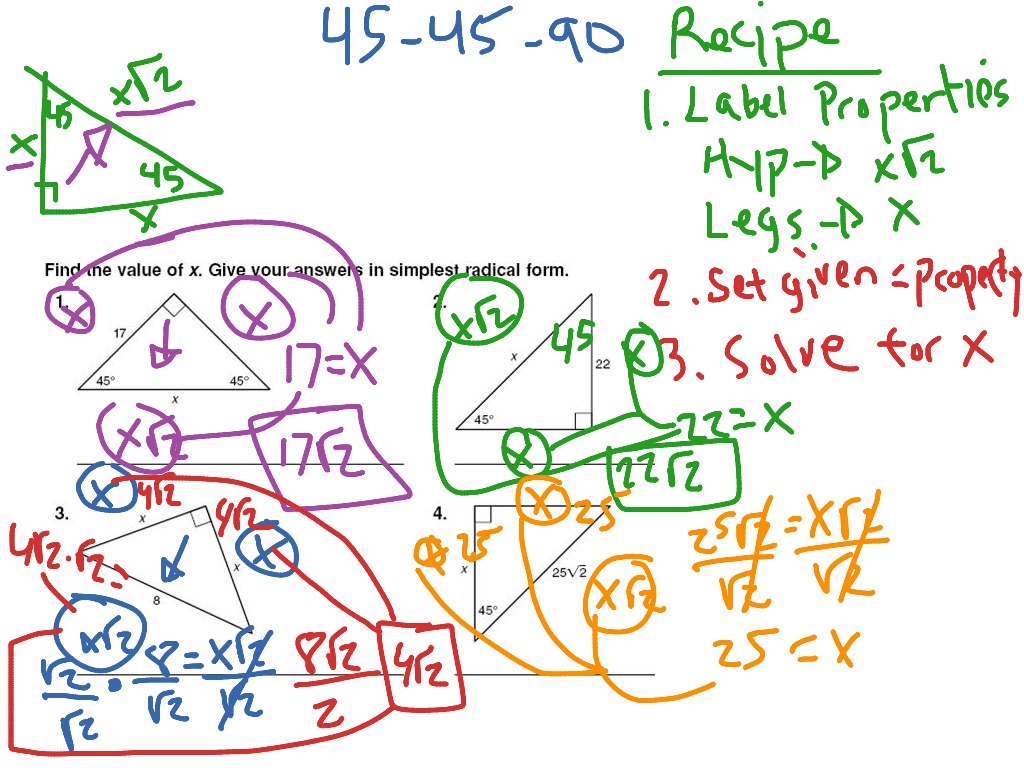 45-45-90
Recipe
1. Label Properties
Hyp → x√2
Legs → x
2. Set given = property
3. Solve for x
x√2
45
x
45
x
Find the value of x. Give your answers in simplest radical form.
1.
x
x
17
17=x
45°
45°
x
x√2
17√2
2.
x√2
45
x
x
22
45°
x
22=x
22√2
3.
x
4√2
x
4√2
x
x
4√2·√2=
8
x√2
√2/√2 · 8/√2 = x√2/√2
8√2/2
4√2
4.
x
25
x
25
x
25√2
45°
x√2
25√2/√2 = x√2/√2
25=x